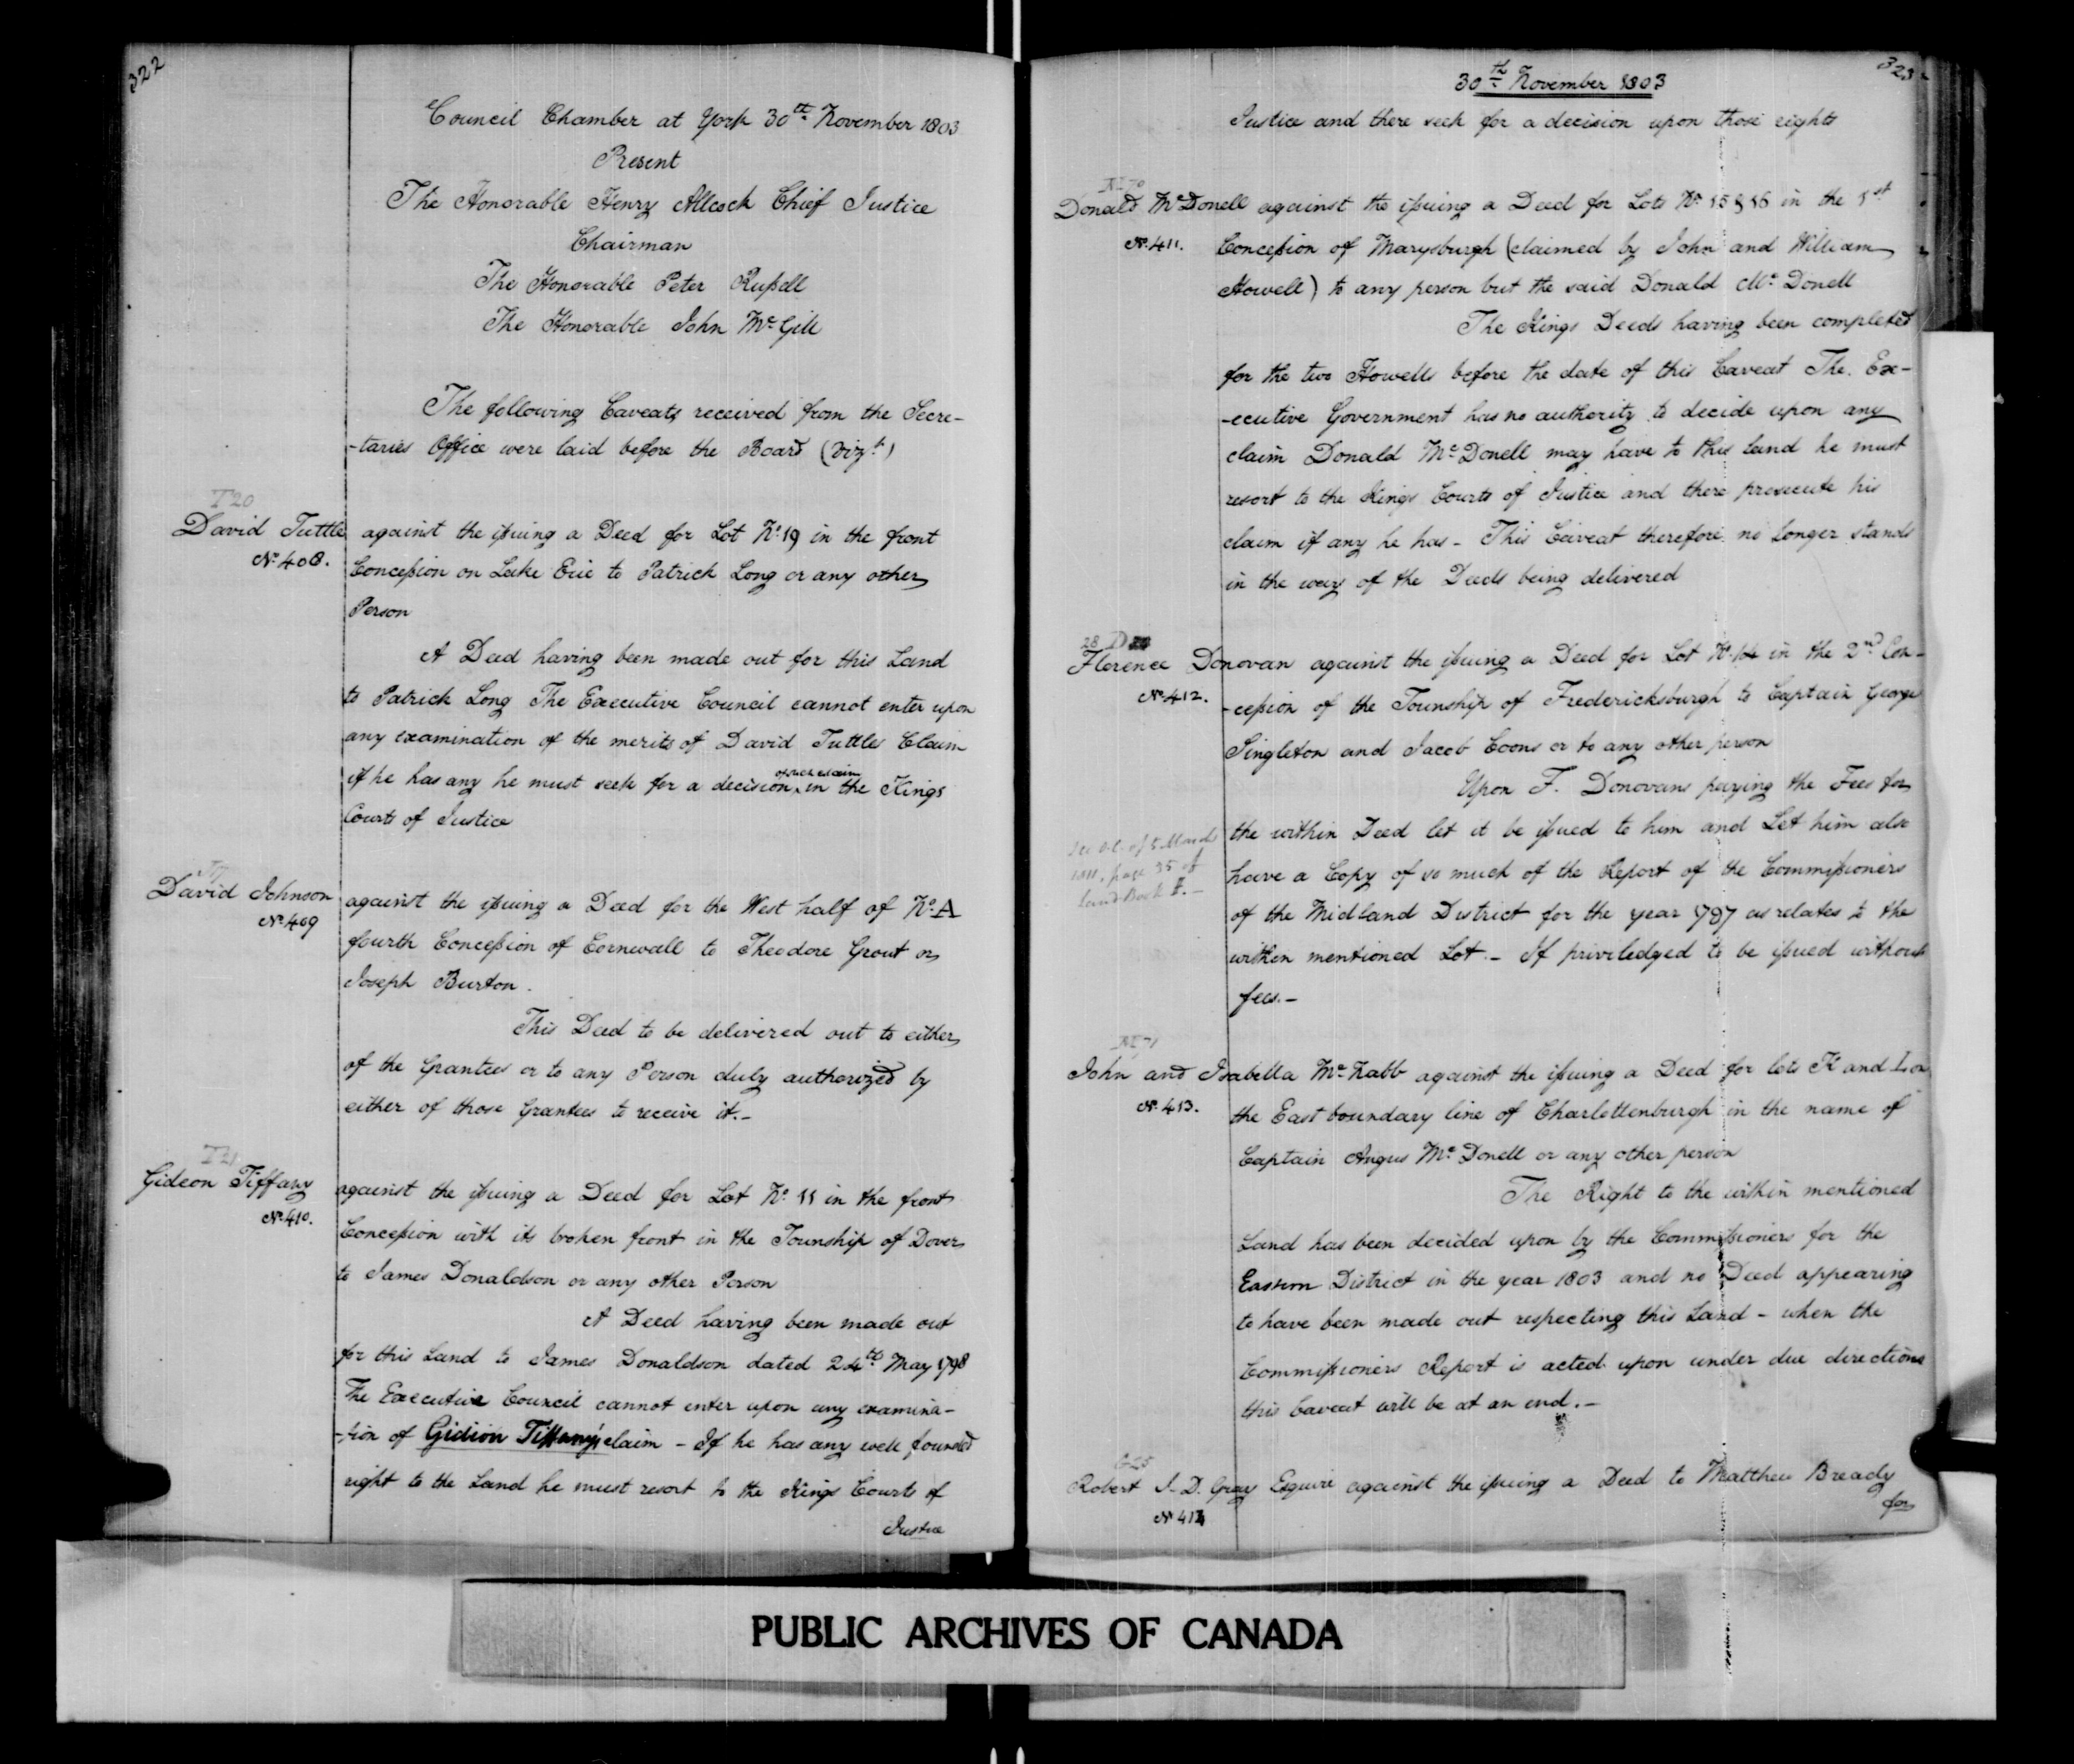 322
Council Chamber at York 30th November 1803
Present
The Honorable Henry Allcock Chief Justice
Chairman
The Honorable Peter Russell
The Honorable John McGill
The following Caveats received from the Secre-
-taries Office were laid before the Board (vizt)
T20
David Tuttle against the issuing a Deed for Lot No. 19 in the front
No. 408. Concession on Lake Erie to Patrick Long or any other
Person
A Deed having been made out for this Land
to Patrick Long The Executive Council cannot enter upon
any examination of the merits of David Tuttles Claim
if he has any he must seek for a decision of such claim in the Kings
Courts of Justice
David Johnson against the issuing a Deed for the West half of No. A
No. 409 fourth Concession of Cornwall to Theodore Grout or
Joseph Burton.
This Deed to be delivered out to either
of the Grantees or to any Person duly authorized by
either of those Grantees to receive it.-
T21
Gideon Tiffany against the issuing a Deed for Lot No. 11 in the front
No. 410. Concession with its broken front in the Township of Dover
to James Donaldson or any other Person
A Deed having been made out
for this Land to James Donaldson dated 24th May 1798
The Executive Council cannot enter upon any examina-
-tion of Gidion Tiffany's claim - If he has any well founded
right to the Land he must resort to the Kings Courts of
Justice
323
30th November 1803
Justice and there seek for a decision upon those rights
M70
Donald McDonell against the issuing a Deed for Lots No. 15 & 16 in the 1st
No. 411. Concession of Marysburgh (claimed by John and William
Howell) to any person but the said Donald McDonell
The Kings Deeds having been completed
for the two Howells before the date of this Caveat The. Ex-
-ecutive Government has no authority to decide upon any
claim Donald McDonell may have to this land he must
resort to the Kings Courts of Justice and there prosecute his
claim if any he has - This Caveat therefore no longer stands
in the way of the Deeds being delivered
28 D
Florence Donovan against the issuing a Deed for Lot No. 14 in the 2nd Con-
No. 412. -cession of the Township of Fredericksburgh to Captain George
Singleton and Jacob Coons or to any other person
Upon F. Donovans paying the Fees for
the within Deed let it be issued to him and Let him also
See O.C. of 5 March
1811, page 35 of
Land Book I.-
have a Copy of so much of the Report of the Commissioners
of the Midland District for the year 1797 as relates to the
within mentioned Lot - If priviledged to be issued without
fees.-
M71
John and Isabella McNabb against the issuing a Deed for lots K and L on
No. 413. the East boundary line of Charlottenburgh in the name of
Captain Angus McDonell or any other person
The Right to the within mentioned
Land has been decided upon by the Commissioners for the
Eastern District in the year 1803 and no Deed appearing
to have been made out respecting this Land - when the
Commissioners Report is acted upon under due directions
this Caveat will be at an end.-
G25
Robert I. D. Gray Esquire against the issuing a Deed to Matthew Bready
No. 414
for
PUBLIC ARCHIVES OF CANADA